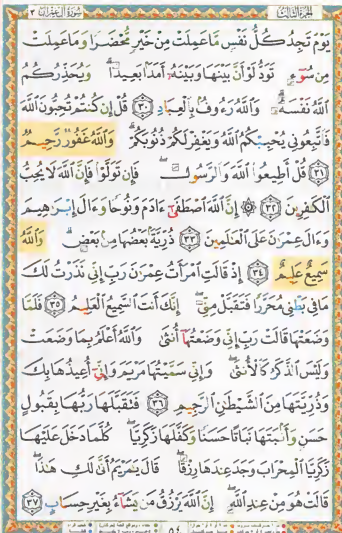 الجزء الثالث
سورة آل عمران ٣
يَوْمَ تَجِدُ كُلُّ نَفْسٍ مَّا عَمِلَتْ مِنْ خَيْرٍ مُّحْضَرًا وَمَا عَمِلَتْ
مِن سُوٓءٍ تَوَدُّ لَوْ أَنَّ بَيْنَهَا وَبَيْنَهُۥٓ أَمَدًۢا بَعِيدًا ۗ وَيُحَذِّرُكُمُ
ٱللَّهُ نَفْسَهُۥ ۗ وَٱللَّهُ رَءُوفٌۢ بِٱلْعِبَادِ ٣٠ قُلْ إِن كُنتُمْ تُحِبُّونَ ٱللَّهَ
فَٱتَّبِعُونِى يُحْبِبْكُمُ ٱللَّهُ وَيَغْفِرْ لَكُمْ ذُنُوبَكُمْ ۗ وَٱللَّهُ غَفُورٌ رَّحِيمٌ
٣١ قُلْ أَطِيعُوا۟ ٱللَّهَ وَٱلرَّسُولَ ۖ فَإِن تَوَلَّوْا۟ فَإِنَّ ٱللَّهَ لَا يُحِبُّ
ٱلْكَٰفِرِينَ ٣٢ ۞ إِنَّ ٱللَّهَ ٱصْطَفَىٰٓ ءَادَمَ وَنُوحًا وَءَالَ إِبْرَٰهِيمَ
وَءَالَ عِمْرَٰنَ عَلَى ٱلْعَٰلَمِينَ ٣٣ ذُرِّيَّةًۢ بَعْضُهَا مِنۢ بَعْضٍ ۗ وَٱللَّهُ
سَمِيعٌ عَلِيمٌ ٣٤ إِذْ قَالَتِ ٱمْرَأَتُ عِمْرَٰنَ رَبِّ إِنِّى نَذَرْتُ لَكَ
مَا فِى بَطْنِى مُحَرَّرًا فَتَقَبَّلْ مِنِّىٓ ۖ إِنَّكَ أَنتَ ٱلسَّمِيعُ ٱلْعَلِيمُ ٣٥ فَلَمَّا
وَضَعَتْهَا قَالَتْ رَبِّ إِنِّى وَضَعْتُهَآ أُنثَىٰ وَٱللَّهُ أَعْلَمُ بِمَا وَضَعَتْ
وَلَيْسَ ٱلذَّكَرُ كَٱلْأُنثَىٰ ۖ وَإِنِّى سَمَّيْتُهَا مَرْيَمَ وَإِنِّىٓ أُعِيذُهَا بِكَ
وَذُرِّيَّتَهَا مِنَ ٱلشَّيْطَٰنِ ٱلرَّجِيمِ ٣٦ فَتَقَبَّلَهَا رَبُّهَا بِقَبُولٍ
حَسَنٍ وَأَنۢبَتَهَا نَبَاتًا حَسَنًا وَكَفَّلَهَا زَكَرِيَّا ۖ كُلَّمَا دَخَلَ عَلَيْهَا
زَكَرِيَّا ٱلْمِحْرَابَ وَجَدَ عِندَهَا رِزْقًا ۖ قَالَ يَٰمَرْيَمُ أَنَّىٰ لَكِ هَٰذَا ۖ
قَالَتْ هُوَ مِنْ عِندِ ٱللَّهِ ۖ إِنَّ ٱللَّهَ يَرْزُقُ مَن يَشَآءُ بِغَيْرِ حِسَابٍ ٣٧
٥٤